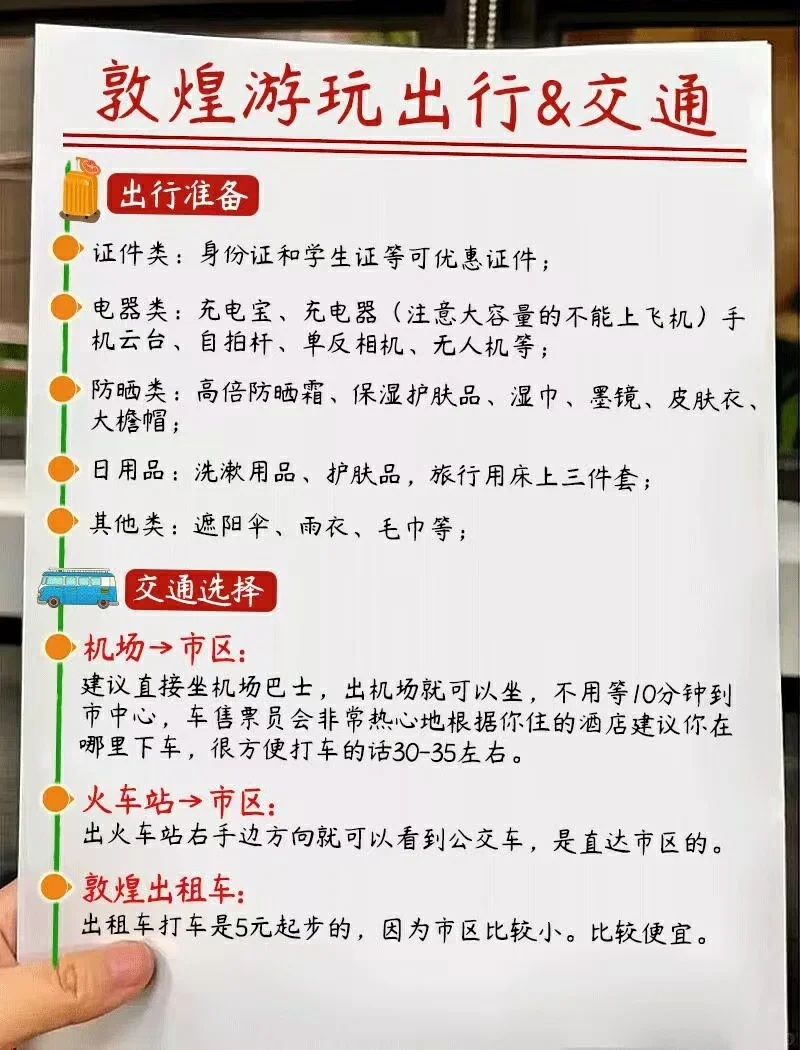 敦煌游玩出行&交通
出行准备
证件类：身份证和学生证等可优惠证件；
电器类：充电宝、充电器（注意大容量的不能上飞机）手
机云台、自拍杆、单反相机、无人机等；
防晒类：高倍防晒霜、保湿护肤品、湿巾、墨镜、皮肤衣、
大檐帽；
日用品：洗漱用品、护肤品，旅行用床上三件套；
其他类：遮阳伞、雨衣、毛巾等；
交通选择
机场→市区：
建议直接坐机场巴士，出机场就可以坐，不用等10分钟到
市中心，车售票员会非常热心地根据你住的酒店建议你在
哪里下车，很方便打车的话30-35左右。
火车站→市区：
出火车站右手边方向就可以看到公交车，是直达市区的。
敦煌出租车：
出租车打车是5元起步的，因为市区比较小。比较便宜。